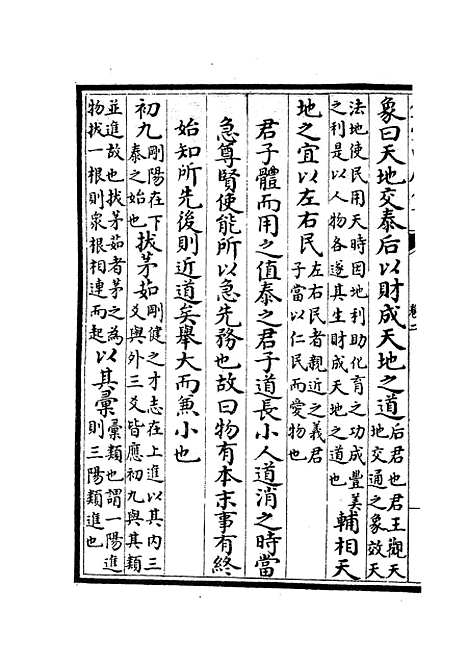 象曰天地交泰后以財成天地之道后君也君王觀天地交通之象效天
法地使民用天時因地利助化育之功成豐美之利是以人物各遂其生財成天地之道也輔相天
地之宜以左右民左右民者親近之義君子當以仁民而愛物也
君子體而用之值泰之君子道長小人道消之時當
急尊賢使能所以急先務也故曰物有本末事有終
始知所先後則近道矣舉大而兼小也
初九剛陽在下泰之始也拔茅茹剛健之才志在上進以其內三爻與外三爻皆應初九與其類
並進故也拔茅茹者茅之為物拔一根則衆根相連而起以其彙彙類也謂一陽進則三陽類進也
卷二